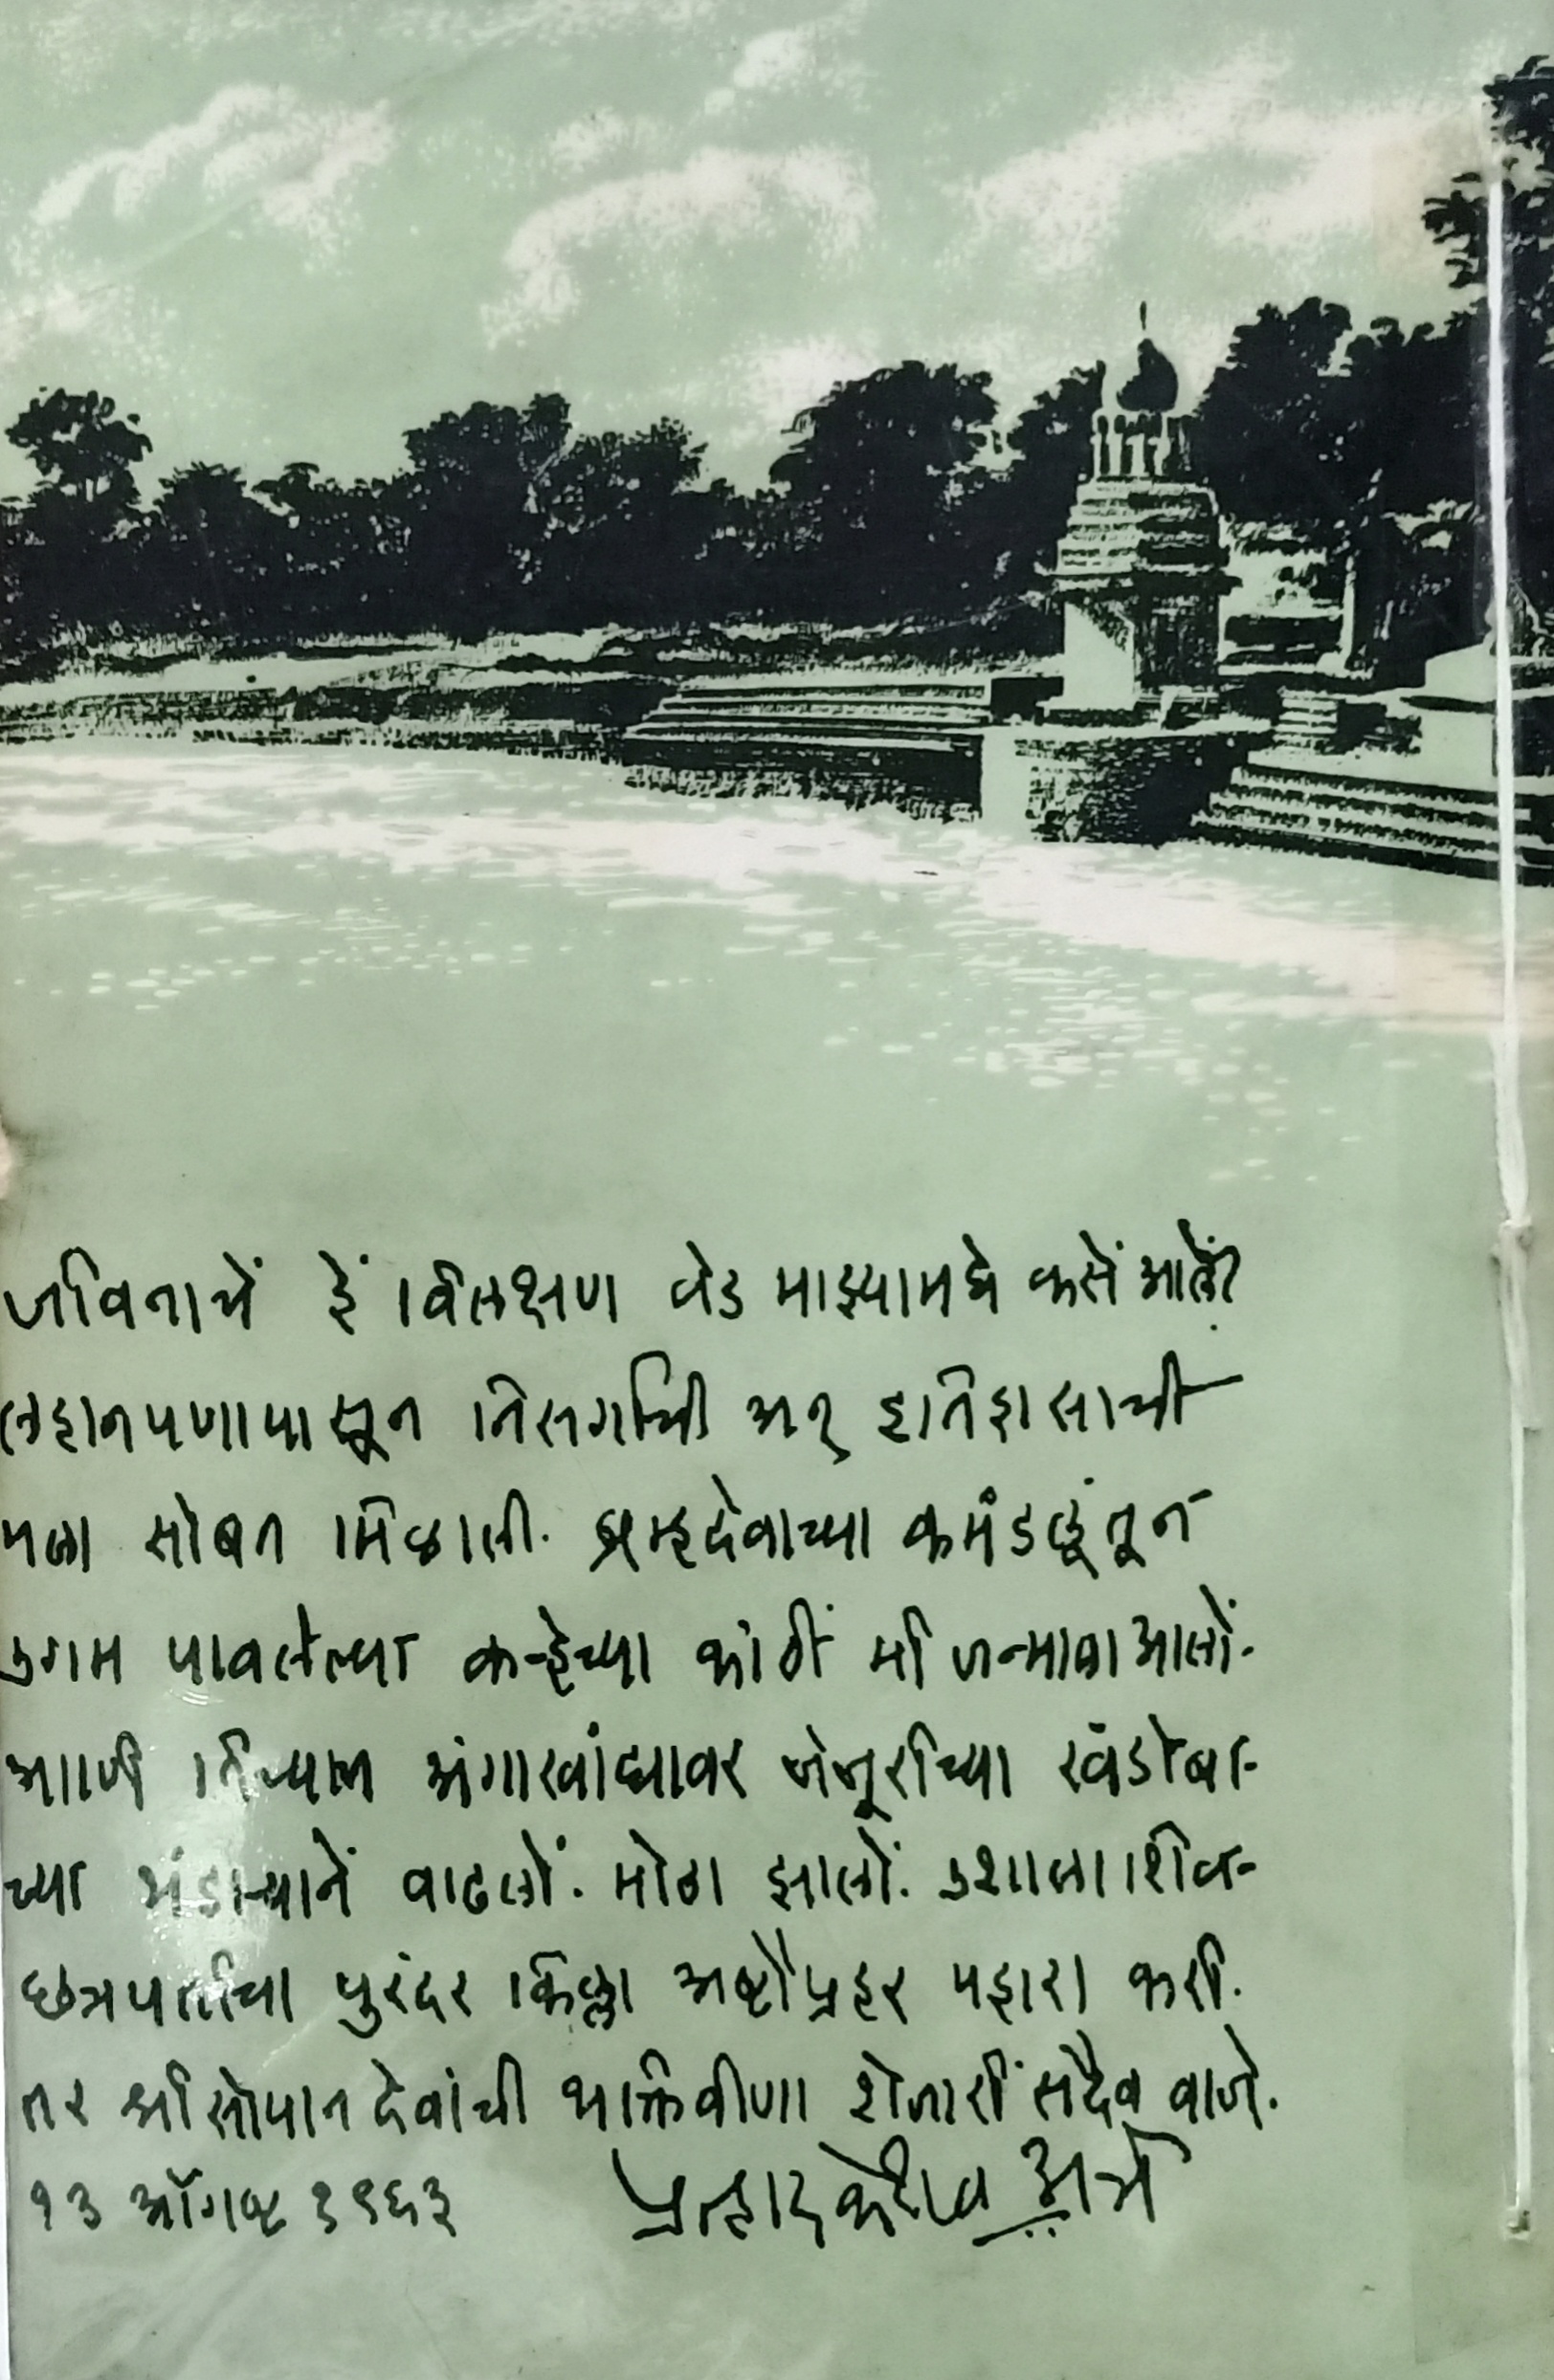 जीवनाचें हें विलक्षण वेड माझ्यामधे कसें आलें?
लहानपणापासून निसर्गाची अन् इतिहासाची
मला सोबत मिळाली. ब्रम्हदेवाच्या कमंडलूंतून
उगम पावलेल्या कऱ्हेच्या कांठीं मी जन्माला आलों.
आणि तिच्याच अंगाखांद्यावर जेजूरीच्या खंडोबा-
च्या भंडाऱ्यानें वाढलों. मोठा झालों. उशाला शिव-
छत्रपतींचा पुरंदर किल्ला अष्टौप्रहर पहारा करी.
तर श्रीसोपानदेवांची भक्तिवीणा शेजारीं सदैव वाजे.
१३ ऑगष्ट १९६३ प्रल्हाद केशव अत्रे